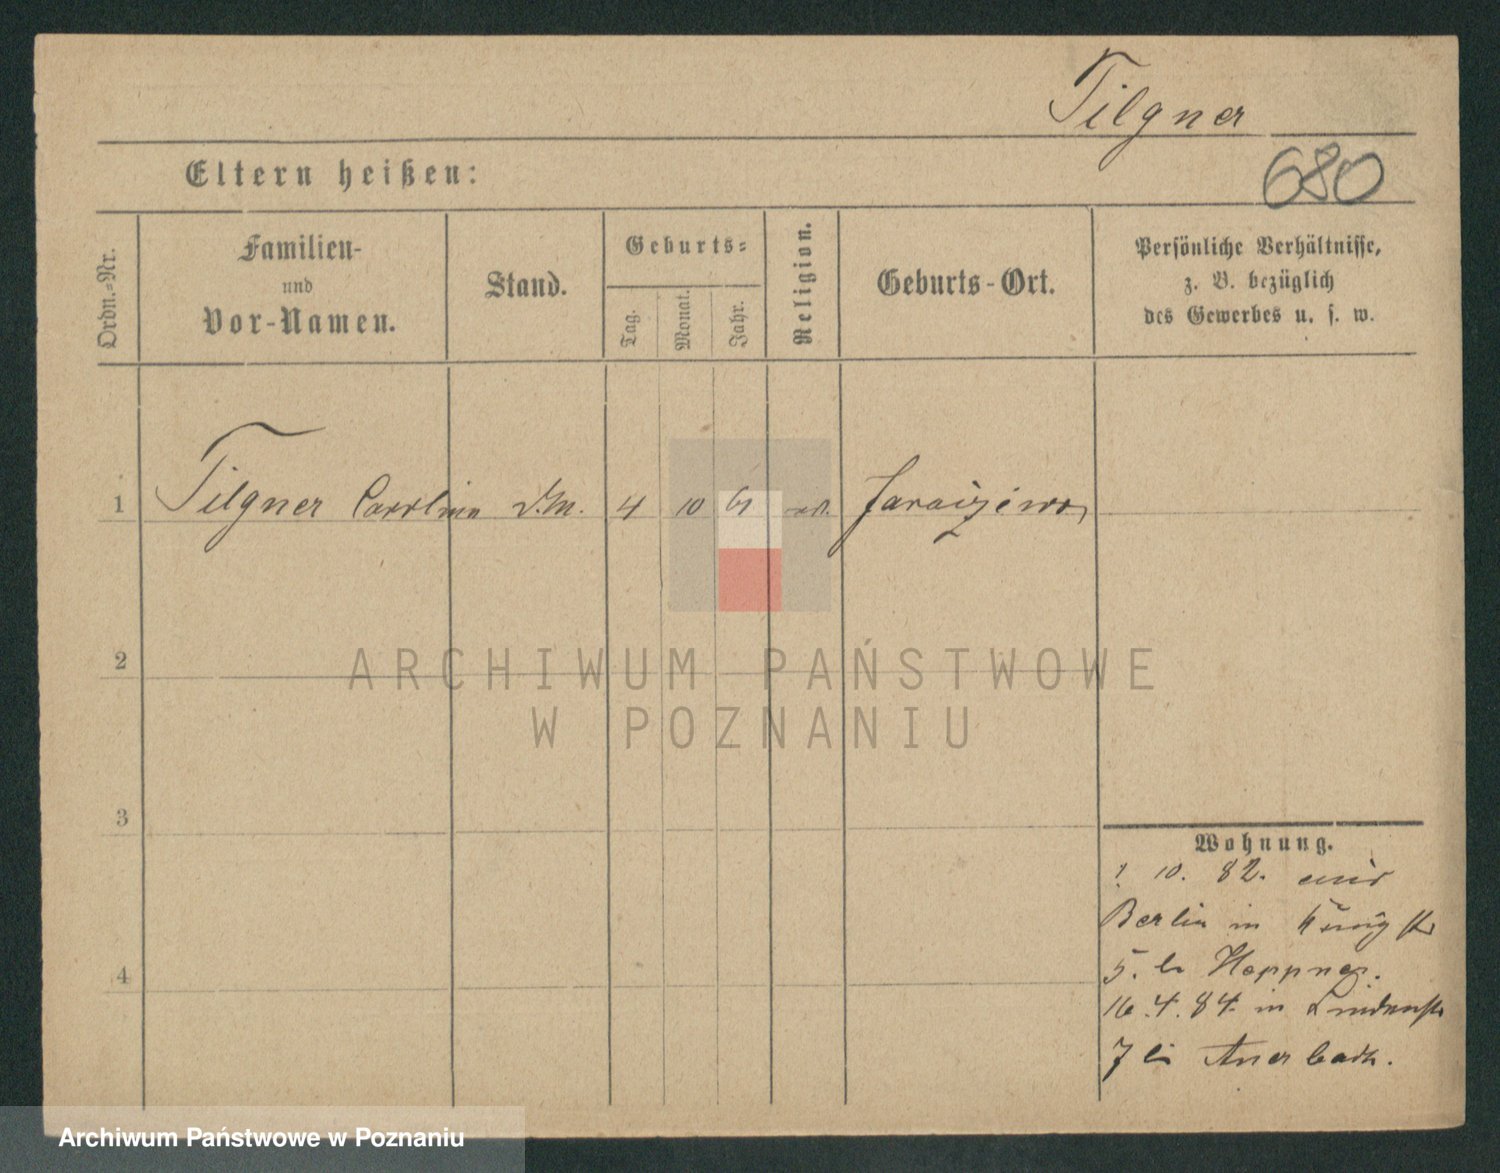 Tilgner
680
Eltern heißen:
Ordn.-Nr.
Familien-
und
Vor-Namen.
Stand.
Geburts-
Tag.
Monat.
Jahr.
Religion.
Geburts-Ort.
Persönliche Verhältnisse,
z. B. bezüglich
des Gewerbes u. s. w.
1 Tilgner 4 10 61
2
ARCHIWUM PAŃSTWOWE
W POZNANIU
3
Wohnung.
10. 82.
Berlin in
5. Heppner.
4
16.4.84. in Lindenstr
7 Auerbach.
Archiwum Państwowe w Poznaniu